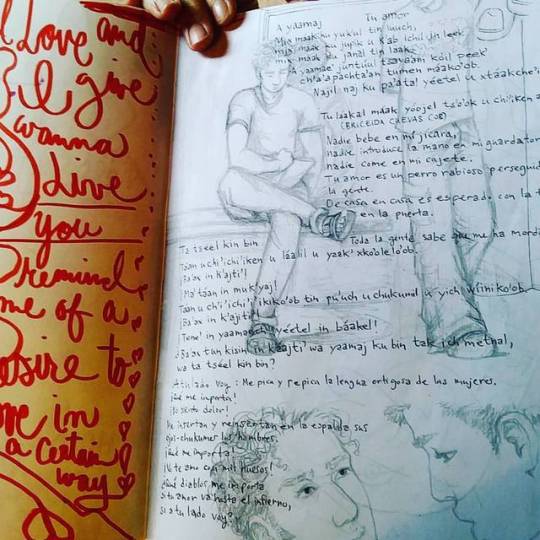 Love and
I give
wanna
Live
you
remind
me of a
Desire to
in
a certain
way
A yaamaj
Tu amor
Mix maak ku yuk'ul tin luuch,
mix maak ku jupik u k'ab ichil in leek
mix maak ku janal tin laak
A yaamae' juntúul tsayaani kóil peek'
ch'a'apachta'an tumen máako'ob.
Najil naj ku pa'ata! yéetel u xtáakche'i
Tu laakal máak yóojel ts'o'ok u chi'iken
(BRICEIDA CUEVAS COB)
Nadie bebe en mi jícara,
nadie introduce la mano en mi guardator
nadie come en mi cajete.
Tu amor es un perro rabioso persegui
la gente.
De casa en casa es esperado con la t
en la puerta.
Toda la gente sabe que me ha mordi
Ta tséel kin bin
Táan u chi'ichi'iken u láalil u yaak' xko'olelo'ob.
¡Ba'ax in k'ajti'!
¡Ma'táan in muk'yaj!
Táan u ch'i'ich'i'ikiko'ob tin pu'uch u chukumil u yich wíiniko'ob.
¡Ba'ax in k'ajti'!
Tene' in yaamaech yéetel in báakel!
¿Ba'ax tun kisin in k'aajti' wa yaamaj ku bin tak ich metnal,
wa ta tséel kin bin?
A tu lado voy: Me pica y repica la lengua ortigosa de las mujeres.
¡Qué me importa!
¡No siento dolor!
Me insertan y reinsertan en la espalda sus
ojos-chukumer los hombres.
¡Qué me importa!
¡Yo te amo con mis huesos!
¿Qué diablos me importa
si tu amor va hasta el infierno,
si a tu lado voy?